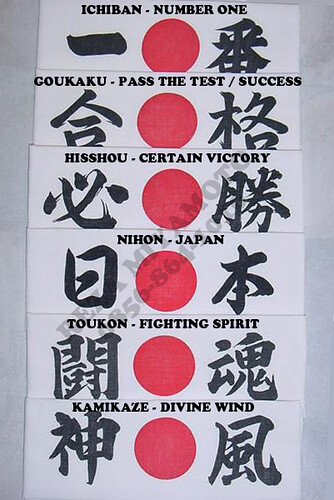 ICHIBAN - NUMBER ONE
一番
GOUKAKU - PASS THE TEST / SUCCESS
合格
HISSHOU - CERTAIN VICTORY
必勝
NIHON - JAPAN
日本
TOUKON - FIGHTING SPIRIT
闘魂
KAMIKAZE - DIVINE WIND
神風